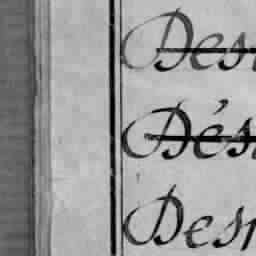 Des
Dés
Des